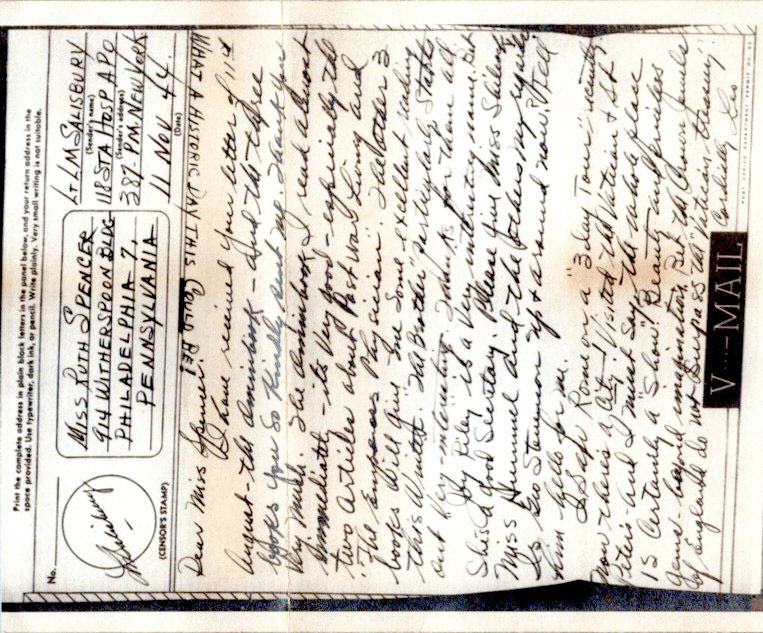 Print the complete address in plain block letters in the panel below, and your return address in the
space provided. Use typewriter, dark ink, or pencil. Write plainly. Very small writing is not suitable.
No.
(CENSOR'S STAMP)
MISS RUTH SPENCER
914 WITHERSPOON BLDG
PHILADELPHIA 7,
PENNSYLVANIA
LT L M SALISBURY
(Sender's name)
118 STA HOSP APO
(Sender's address)
387- PM NEW YORK
11 NOV 44
(Date)
WHAT A HISTORIC DAY THIS COULD BE!
Dear Miss Spencer:
I have received your letter of 11th
August - the Aminibook - and the three
books you so kindly sent me. Thank you
very much. The Aminibook I read almost
immediately - its very good - especially the
two articles about Post war Living and
"The Express Physician". The other 3
books will give me some excellent reading
this Winter. "The Brother" particularly starts
out very interesting. Thanks for them all.
Joy Riley is a very busy woman, but
She's a good Secretary. Please give Miss
Miss Hummel and the others my regards
Is Geo Stemmon up & around now? Tell
him hello for me.
I saw Rome on a "3 day Tour" recently
Now there's a City! Visited the Vatican & St
Peter's - and I must say the whole place
is Certainly a "Show." Beauty and priceless
gems beyond imagination. Bet the Crown Jewels
of England do not Surpass the Vatican treasury.
Cordially, Leo
V···-MAIL
POST OFFICE DEPARTMENT PERMIT NO.